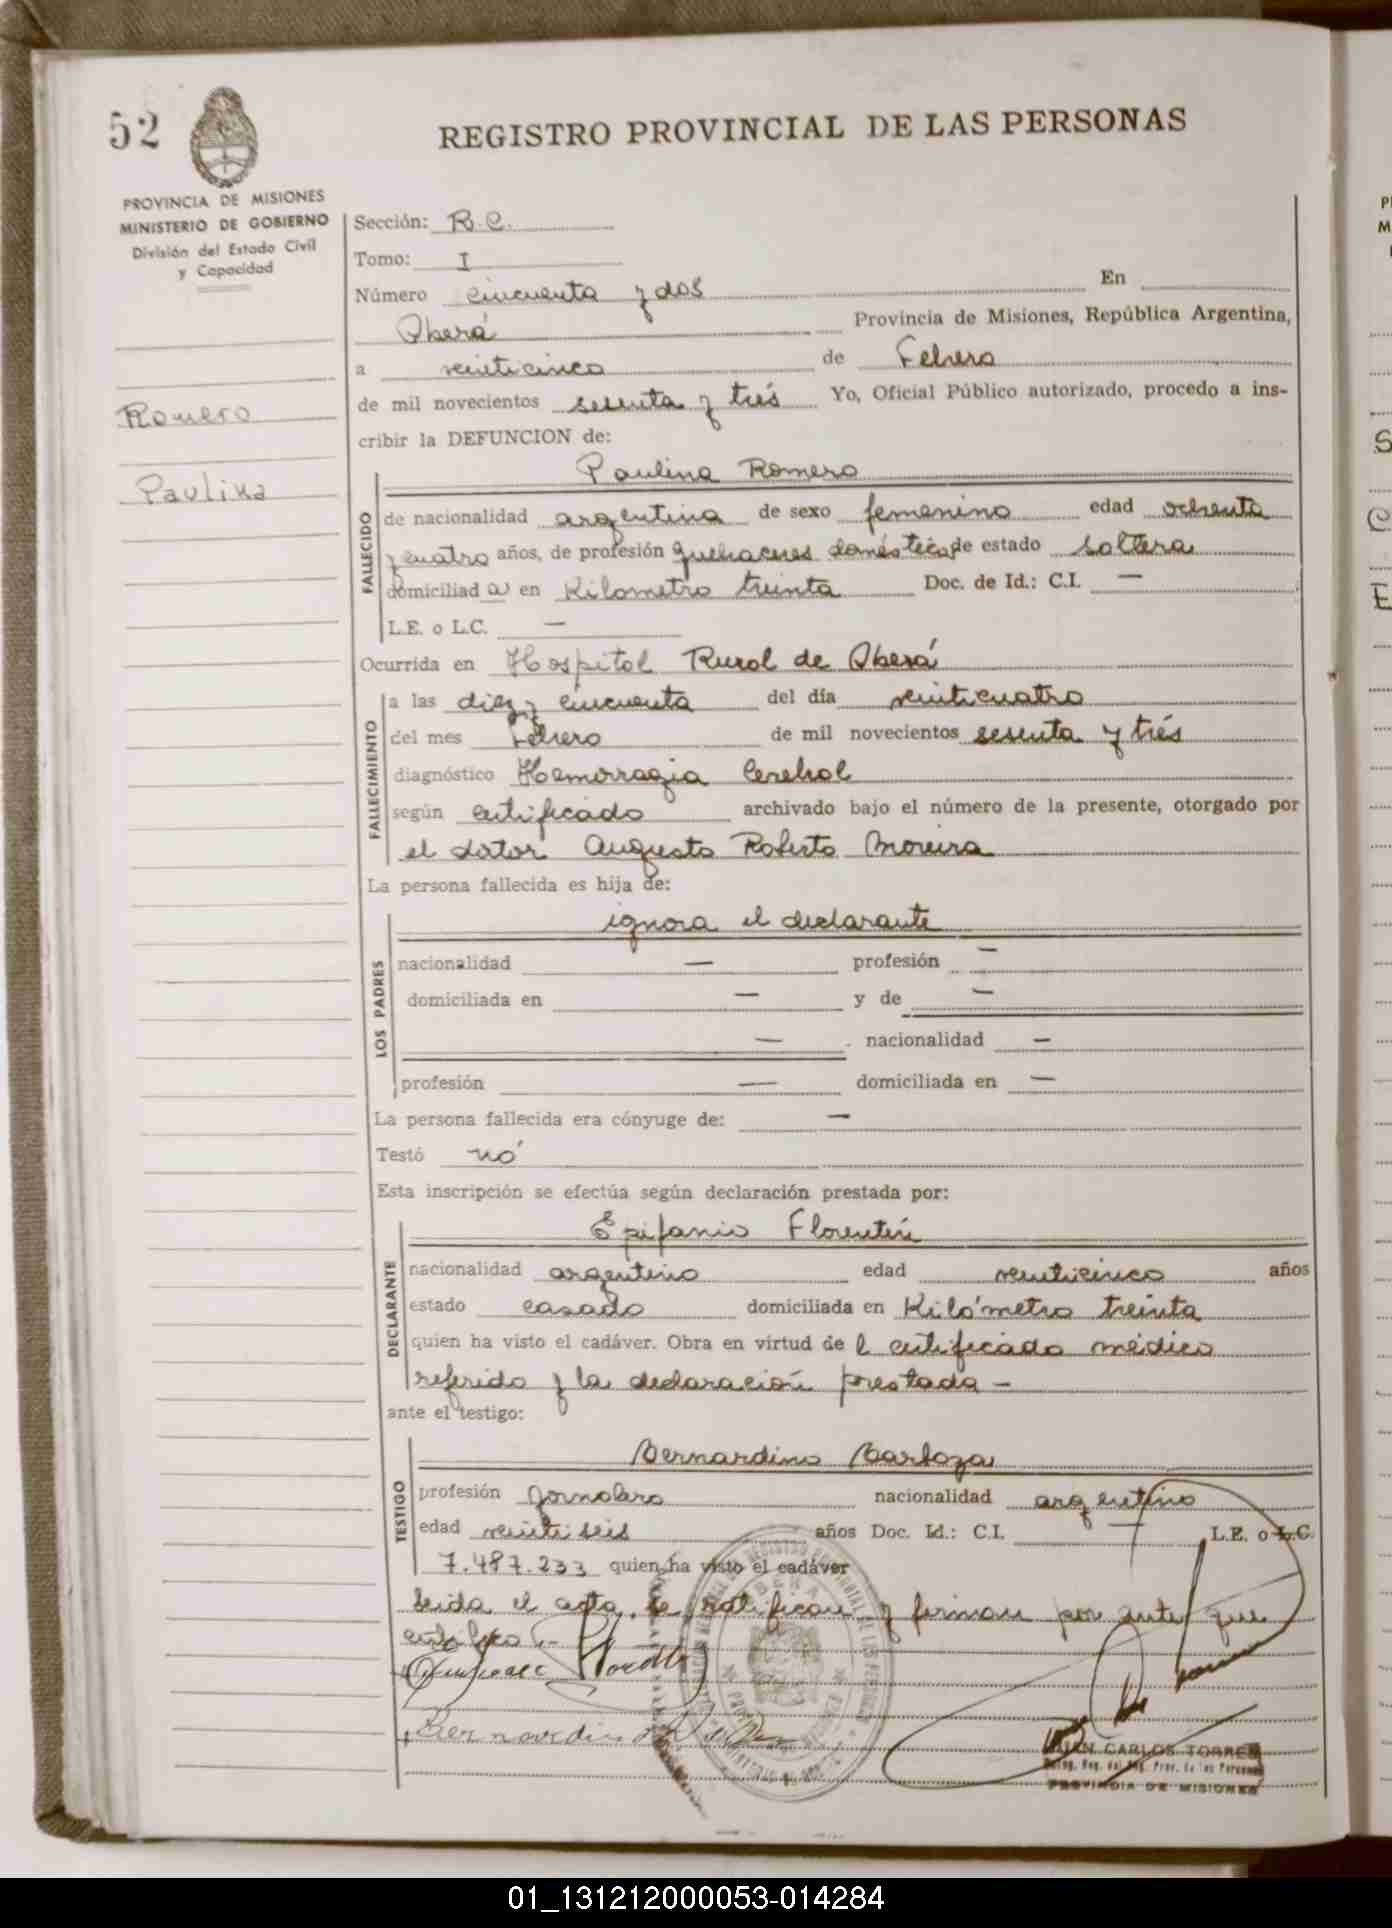 52
REGISTRO PROVINCIAL DE LAS PERSONAS
PROVINCIA DE MISIONES
MINISTERIO DE GOBIERNO
División del Estado Civil
y Capacidad
Romero
Paulina
Sección: R.C.
Tomo: I
Número cincuenta y dos En
Oberá Provincia de Misiones, República Argentina,
a veinticinco de Febrero
de mil novecientos sesenta y trés Yo, Oficial Público autorizado, procedo a ins-
cribir la DEFUNCION de:
Paulina Romero
FALLECIDO
de nacionalidad argentina de sexo femenino edad ochenta
y cuatro años, de profesión quehaceres domésticos de estado soltera
domiciliad a en Kilometro treinta Doc. de Id.: C.I. —
L.E. o L.C. —
Ocurrida en Hospital Rural de Oberá
FALLECIMIENTO
a las diez y cincuenta del día veinticuatro
del mes Febrero de mil novecientos sesenta y trés
diagnóstico Hemorragia Cerebral
según certificado archivado bajo el número de la presente, otorgado por
el doctor Augusto Roberto Moreira
La persona fallecida es hija de:
LOS PADRES
ignora el declarante
nacionalidad — profesión —
domiciliada en — y de —
— nacionalidad —
profesión — domiciliada en —
La persona fallecida era cónyuge de: —
Testó nó
Esta inscripción se efectúa según declaración prestada por:
DECLARANTE
Epifanio Florentín
nacionalidad argentino edad veinticinco años
estado casado domiciliada en Kilómetro treinta
quien ha visto el cadáver. Obra en virtud de l certificado médico
referido y la declaración prestada —
ante el testigo:
TESTIGO
Bernardino Barboza
profesión Jornalero nacionalidad argentino
edad veinti seis años Doc. Id.: C.I. — L.E. o L.C.
7.487.233 quien ha visto el cadáver
Leida el acta, se ratifican y firman por ante que
certifico.-
Bernardino
JUAN CARLOS TORRES
PROVINCIA DE MISIONES
01_131212000053-014284